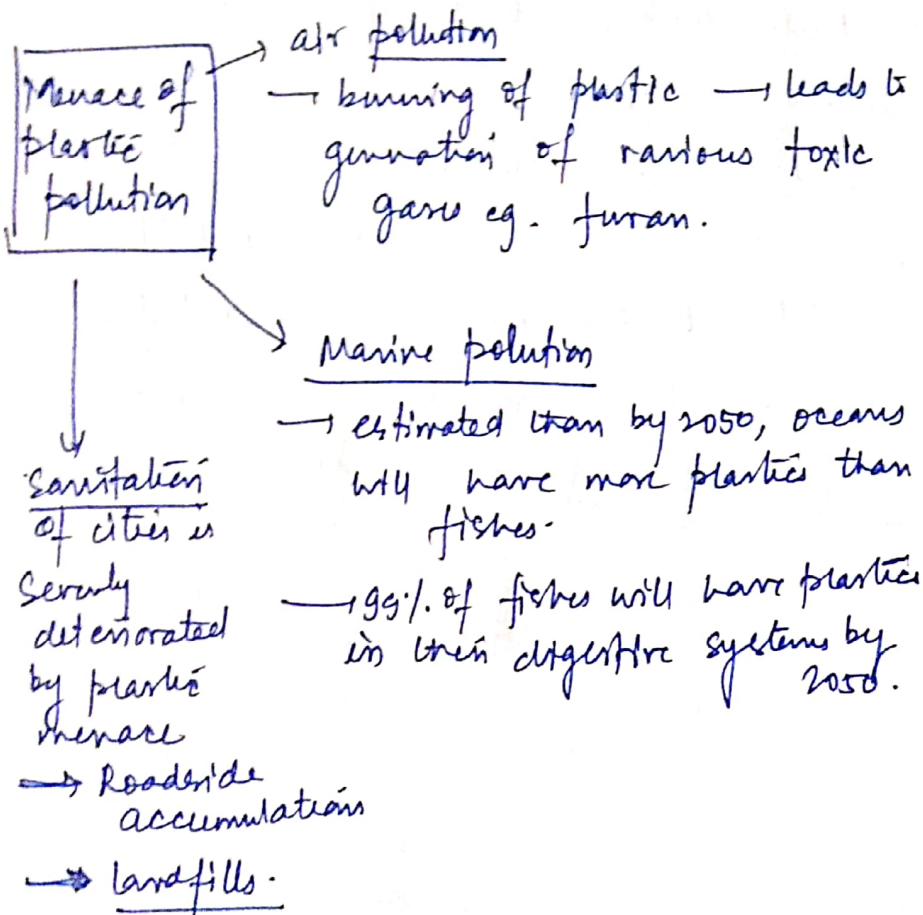 Menace of
plastic
pollution
→ air pollution
→ burning of plastic → leads to
generation of various toxic
gases eg. furan.
Marine polution
→ estimated than by 2050, oceans
will have more plastics than
fishes.
→ 99% of fishes will have plastics
in their digestive systems by
2050.
Sanitation
of cities is
Severly
deteriorated
by plastic
menace
→ Roadside
accumulations
→ Landfills.